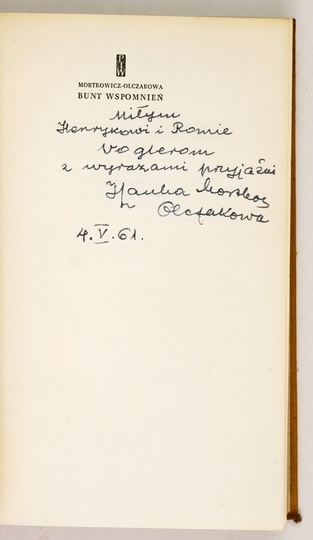 PIW
MORTKOWICZ-OLCZAKOWA
BUNT WSPOMNIEŃ
Miłym
Henrykowi i Romie
Voglerom
z wyrazami przyjaźni
Hanka Mortkow
Olczakowa
4.V.61.